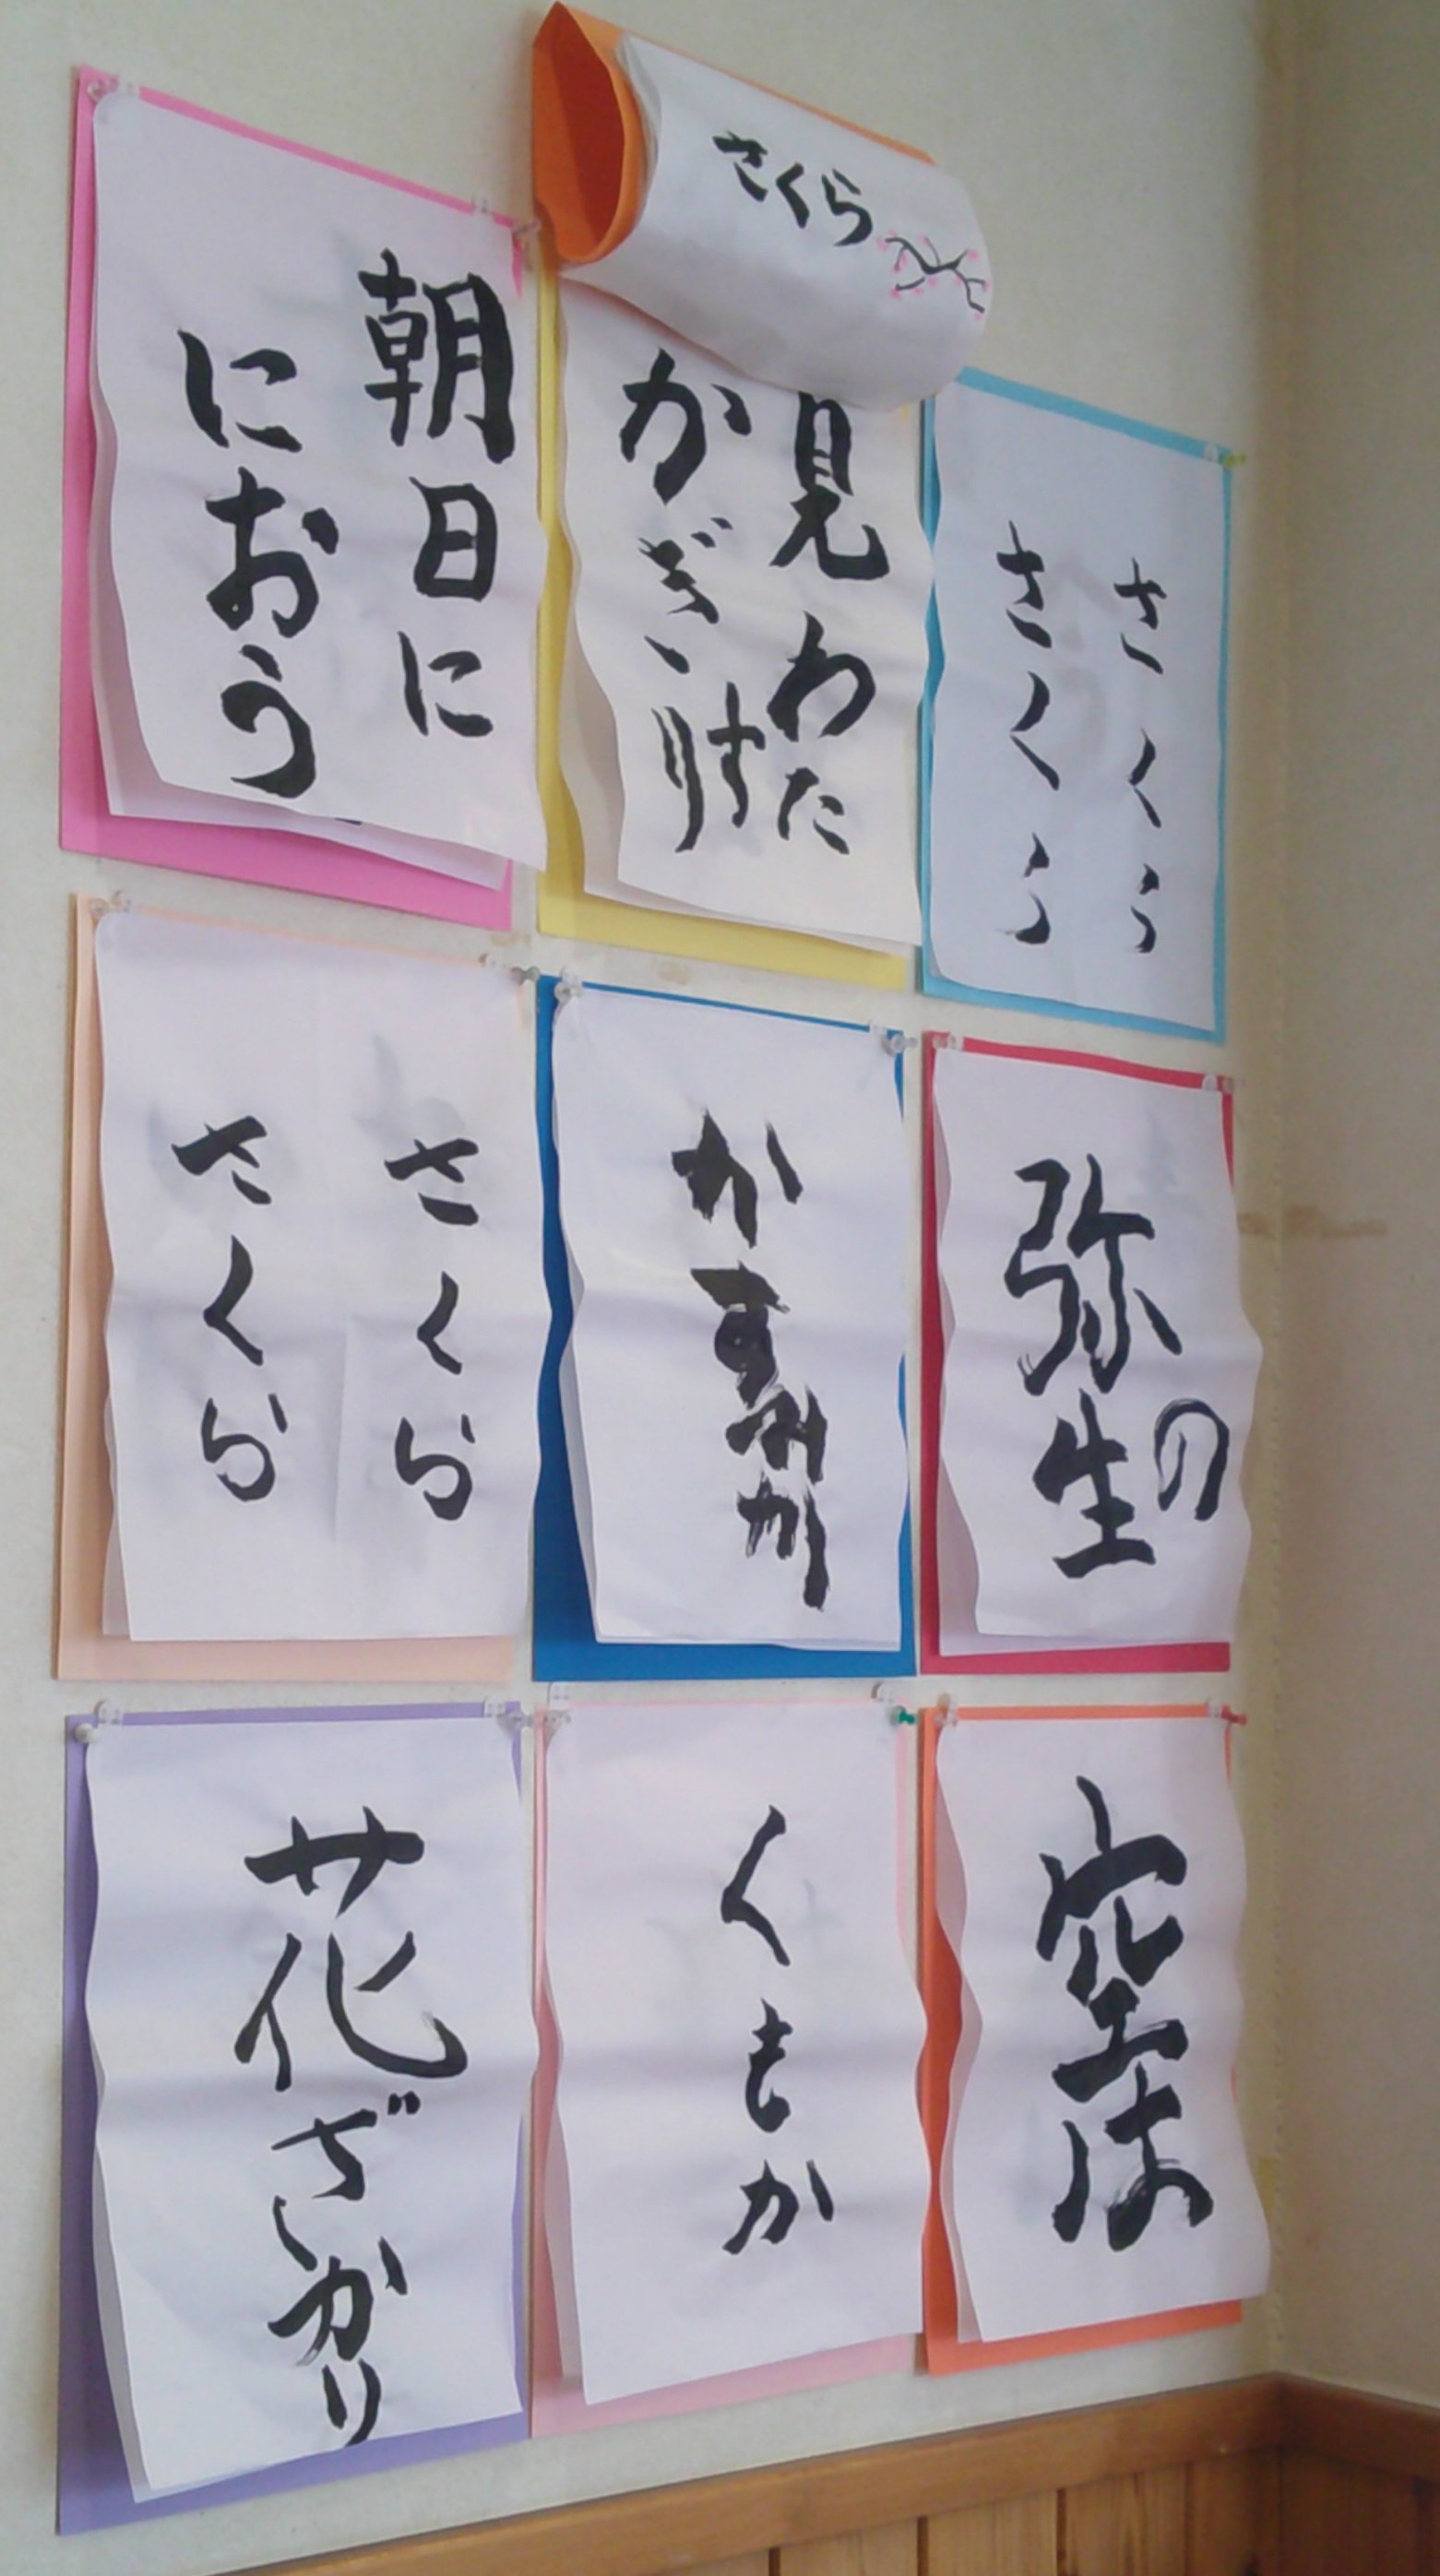 さくら
さくら
さくら
弥生の
空は
見わたす
かぎり
かすみか
くもか
朝日に
におう
さくら
さくら
花ざかり